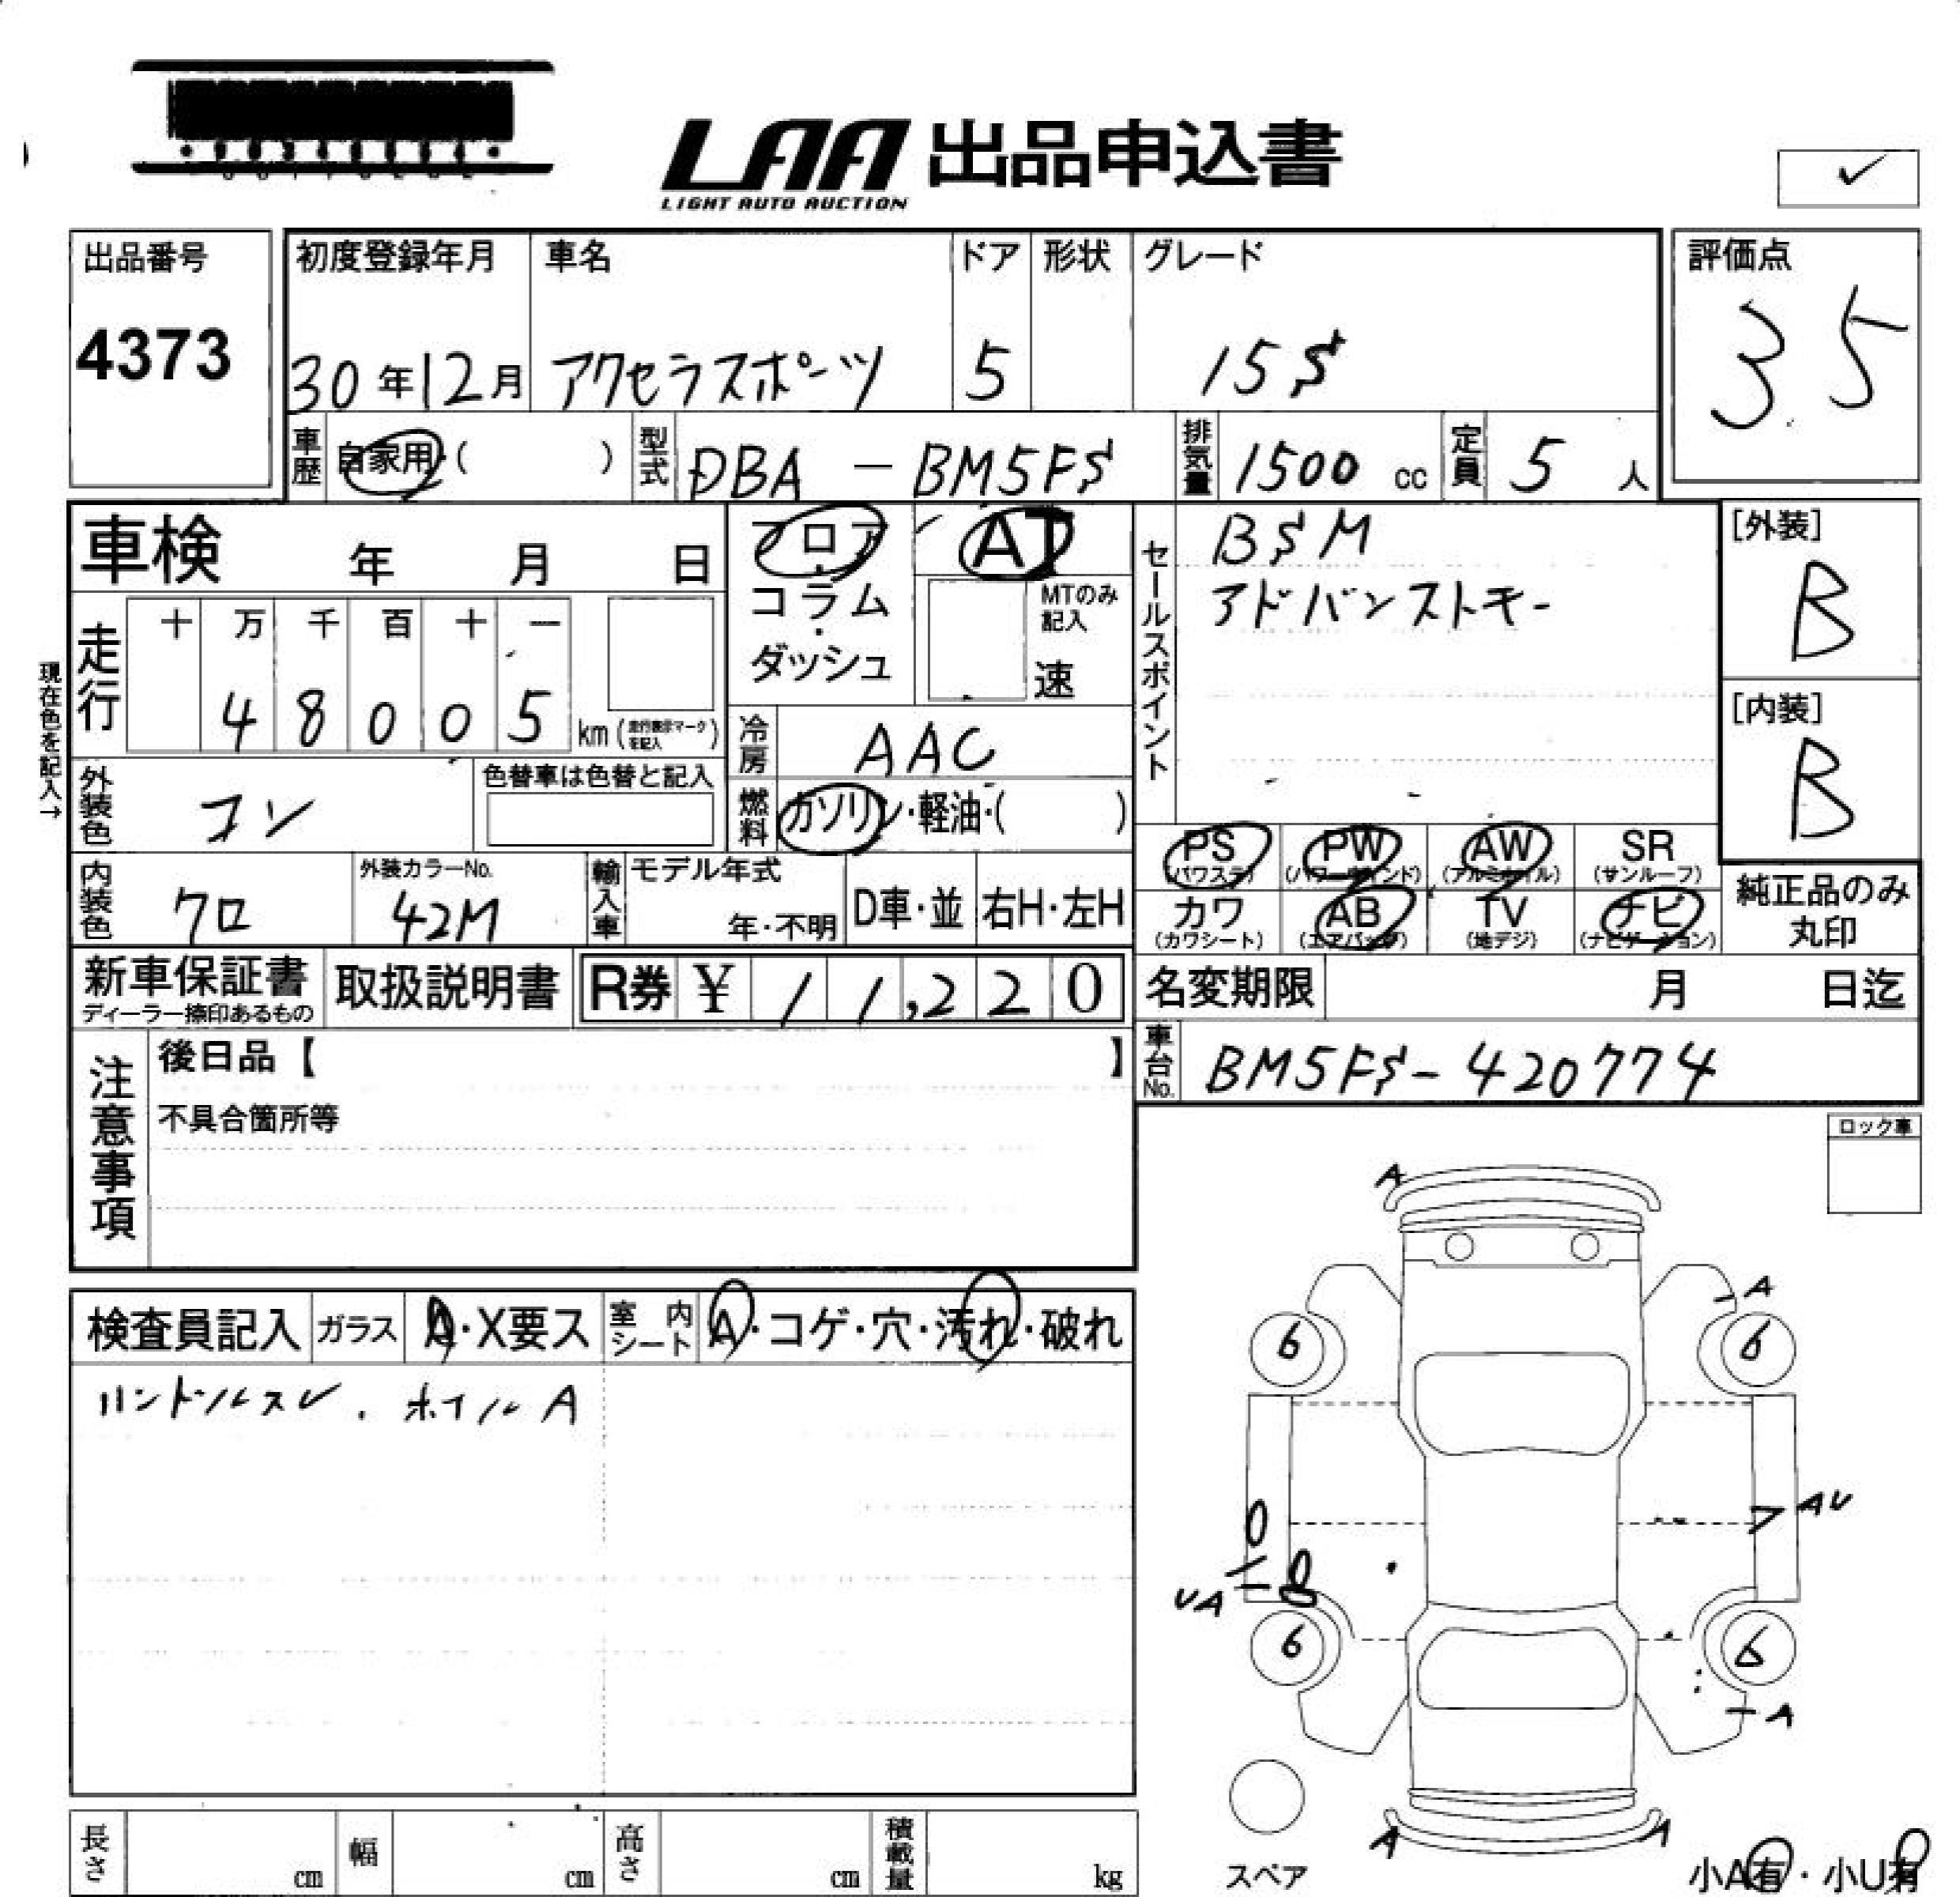 LAA 出品申込書
LIGHT AUTO AUCTION
出品番号
4373
初度登録年月
30年12月
車名
アクセラスポーツ
ドア
5
形状
グレード
15S
評価点
3.5
車歴 自家用・( )
型式 DBA - BM5FS
排気量 1500 cc
定員 5 人
車検 年 月 日
フロア・コラム・ダッシュ
AT
MTのみ記入
速
セールスポイント
BSM
アドバンストキー
[外装]
B
[内装]
B
現在色を記入→
走行
十 万 千 百 十 一
4 8 0 0 5 km (走行表示マークを記入)
冷房 AAC
外装色 コン
色替車は色替と記入
燃料 ガソリン・軽油・( )
内装色 クロ
外装カラーNo.
42M
輸入車
モデル年式
年・不明
D車・並
右H・左H
PS (パワステ)
PW (パワーウインド)
AW (アルミホイル)
SR (サンルーフ)
カワ (カワシート)
AB (エアバッグ)
TV (地デジ)
ナビ (ナビゲーション)
純正品のみ丸印
新車保証書
ディーラー捺印あるもの
取扱説明書
R券 ¥ 11,220
名変期限 月 日迄
車台No. BM5FS-420774
注意事項
後日品【 】
不具合箇所等
ロック車
検査員記入
ガラス A・X要ス
室内シート A・コゲ・穴・汚れ・破れ
ハンドルスレ . ホイルA
A
A
6
6
AU
UA
6
6
A
A
A
スペア
小A有・小U有
長さ cm
幅 cm
高さ cm
積載量 kg